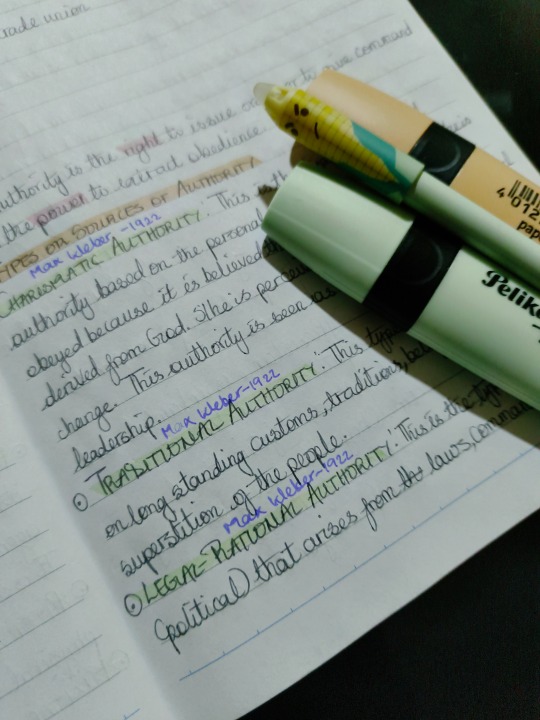 rade union
uthority is the right to issue or to give command
the power to extract obedience.
TYPES OR SOURCES OF AUTHORITY
Max Weber - 1922
CHARISMATIC AUTHORITY: This
authority based on the personal
obeyed because it is believed
derived from God. S/he is perce
change. This authority is seen as
leadership.
Max Weber-1922
TRADITIONAL AUTHORITY: This type
on long standing customs, traditions, be
superstition of the people.
Max Weber-1922
LEGAL-RATIONAL AUTHORITY: This is the type
(political) that arises from the laws, comman
4 012
pap
Pelik